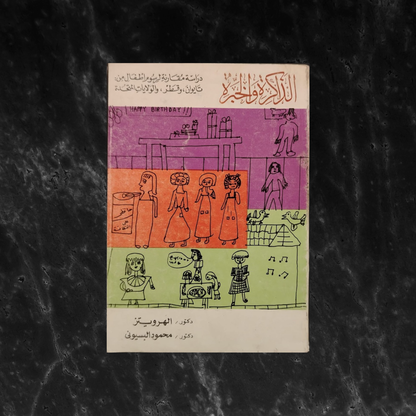 الذاكرة والخبرة
دراسة مقارنة لرسوم أطفال من
تايوان، وقطر، والولايات المتحدة
HAPPY BIRTHDAY
دكتور / الهرويتز
دكتور / محمود البسيوني